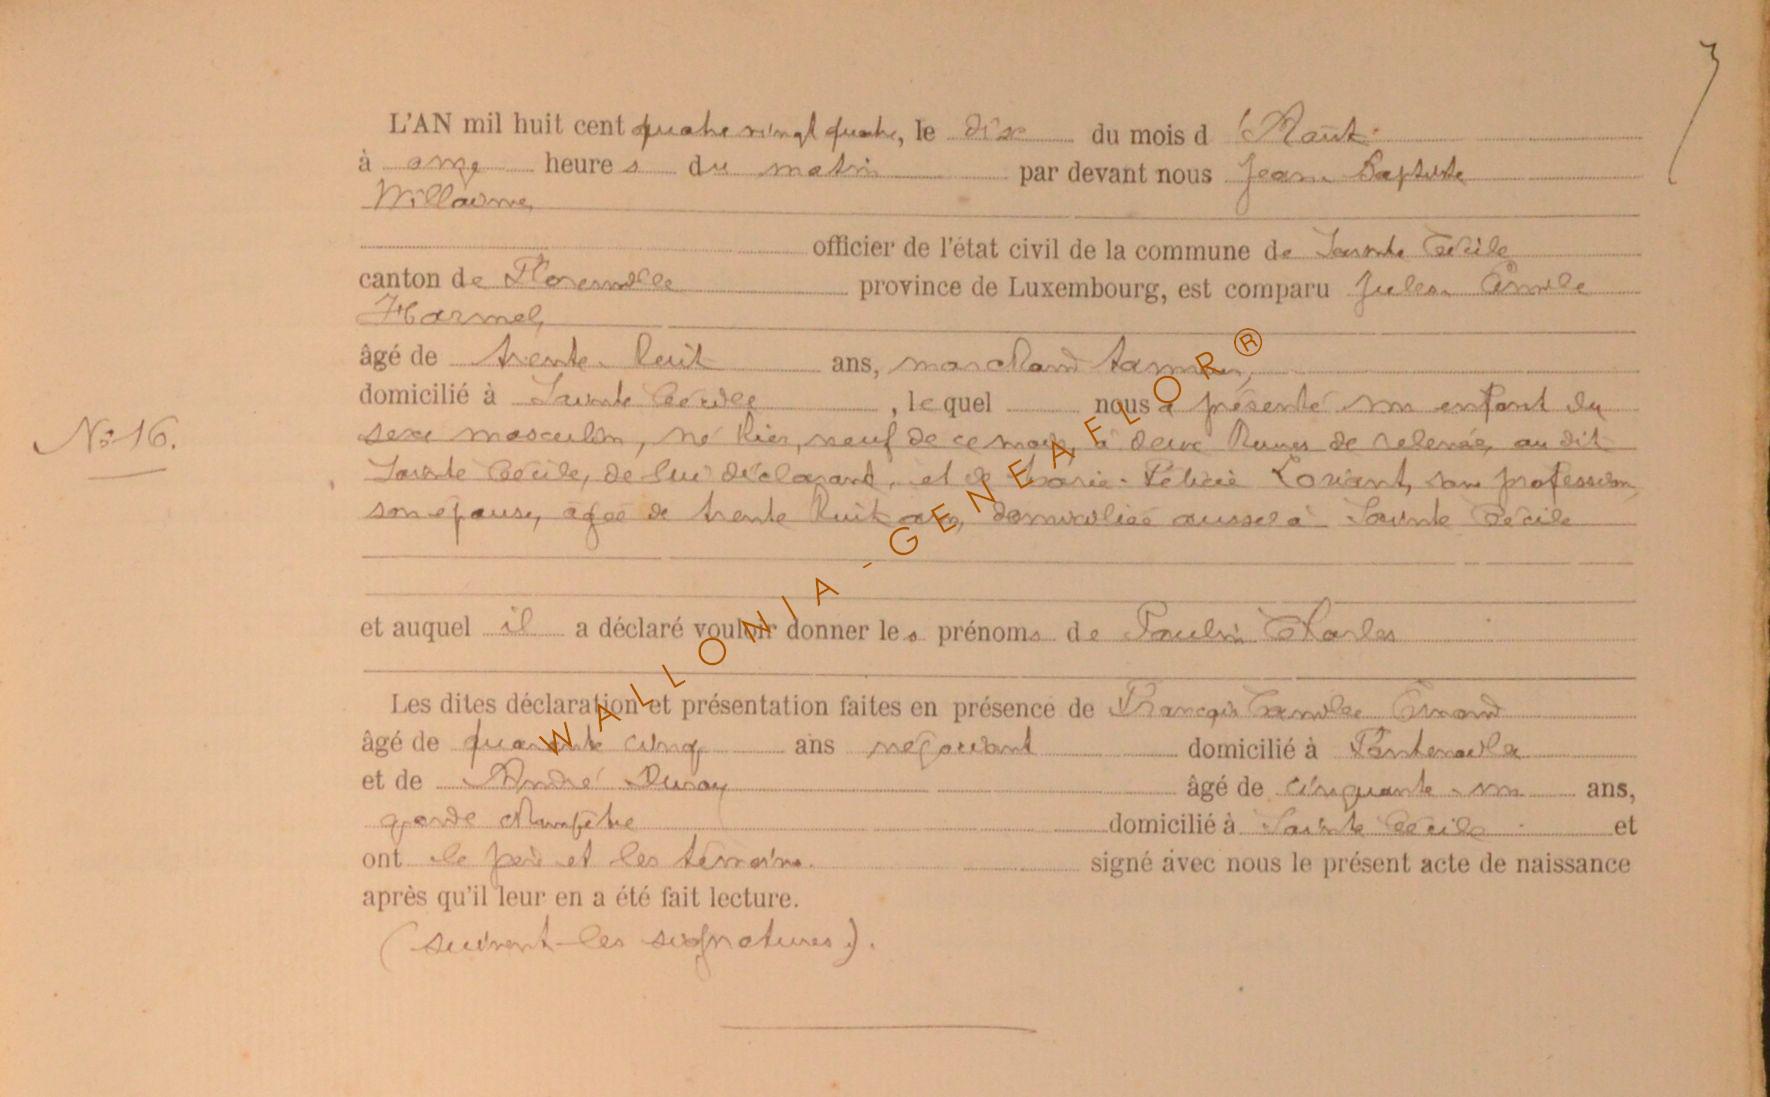 7
L'AN mil huit cent quatre vingt quatre, le dix du mois d 'Août
à onze heures du matin par devant nous Jean Baptiste
Willaime,
officier de l'état civil de la commune de Sainte Cécile
canton de Florenville province de Luxembourg, est comparu Jules Emile
Harmel,
âgé de trente huit ans, marchand tanneur,
domicilié à Sainte Cécile, lequel nous a présenté un enfant du
N° 16.
sexe masculin, né hier, neuf de ce mois, à deux heures de relevée, au dit
Sainte Cécile, de lui déclarant, et de Marie-Félicie Loriant, sans profession,
son épouse, agée de trente huit ans, domiciliée aussi à Sainte Cécile
et auquel il a déclaré vouloir donner les prénoms de Paulin Charles
Les dites déclaration et présentation faites en présence de François Camille
âgé de quarante cinq ans négociant domicilié à Fontenoille
et de André Duroy âgé de cinquante-un ans,
garde champêtre domicilié à Sainte Cécile et
ont le père et les témoins. signé avec nous le présent acte de naissance
après qu'il leur en a été fait lecture.
(suivent les signatures).
WALLONIA-GENEAFLOR®